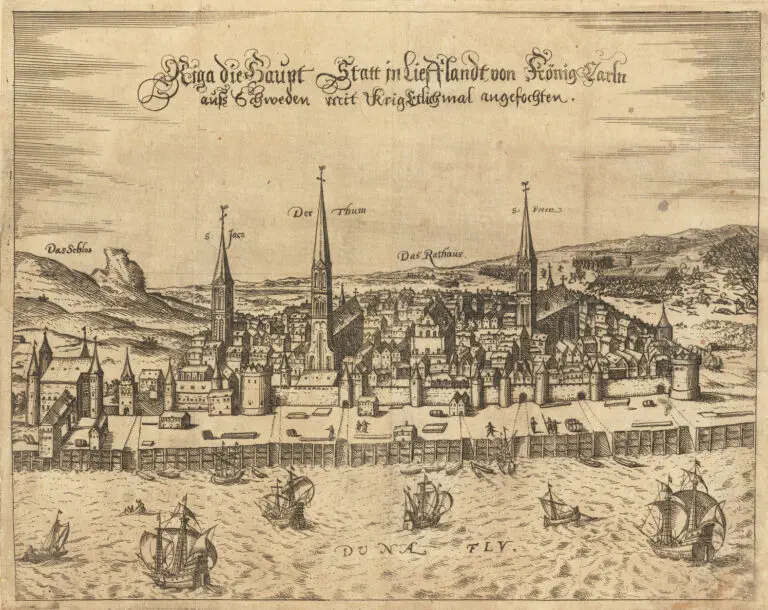 Riga die Haupt Statt in Liefflandt von König Carln
auß Schweden mit Krig Etlichmal angefochten.
Der Thum
S. Peter
S. Jaco
Das Schlos
Das Rathaus
DUNA FLV.